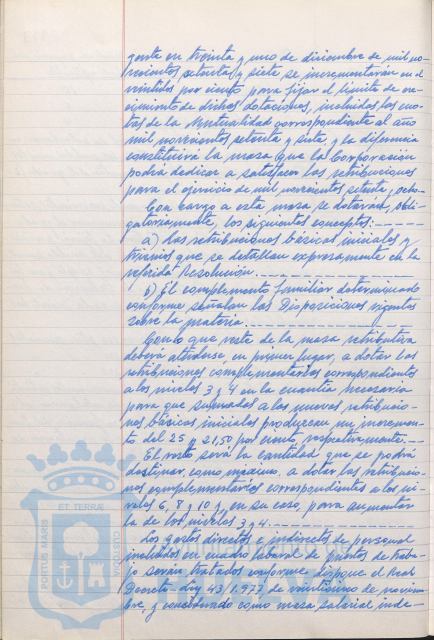 gente en treinta y uno de diciembre de mil no-
vecientos setenta y siete se incrementarán en el
veintidos por ciento para fijar el límite de cre-
cimiento de dichas dotaciones, incluidas las cuo-
tas de la Mutualidad correspondiente al año
mil novecientos setenta y siete, y la diferencia
constituirá la masa que la Corporación
podrá dedicar a satisfacer las retribuciones
para el ejercicio de mil novecientos setenta y ocho.-
Con cargo a esta masa se dotarán, obli-
gatoriamente, los siguientes conceptos:------
a) Las retribuciones básicas iniciales y
trienios que se detallan expresamente en la
referida Resolución.----------------
b) El complemento familiar determinado
conforme señalan las Disposiciones vigentes
sobre la materia.----------------
Con lo que reste de la masa retributiva
deberá atenderse, en primer lugar, a dotar las
retribuciones complementarias correspondientes
a los niveles 3 y 4 en la cuantía necesaria
para que sumadas a las nuevas retribucio-
nes básicas iniciales produzcan un incremen-
to del 25 y 21,50 por ciento, respectivamente.--
El resto será la cantidad que se podrá
destinar, como máximo, a dotar las retribucio-
nes complementarias correspondientes a los ni-
veles 6, 8 y 10 y, en su caso, para aumentar
la de los niveles 3 y 4.----------------
Los gastos directos e indirectos de personal
incluidos en cuadro laboral de puestos de traba-
jo serán tratados conforme dispone el Real
Decreto-Ley 43/1.977 de veinticinco de noviem-
bre, y considerando como masa salarial inde-
PORTUS MARIS
ET TERRAE
CUSTODIA